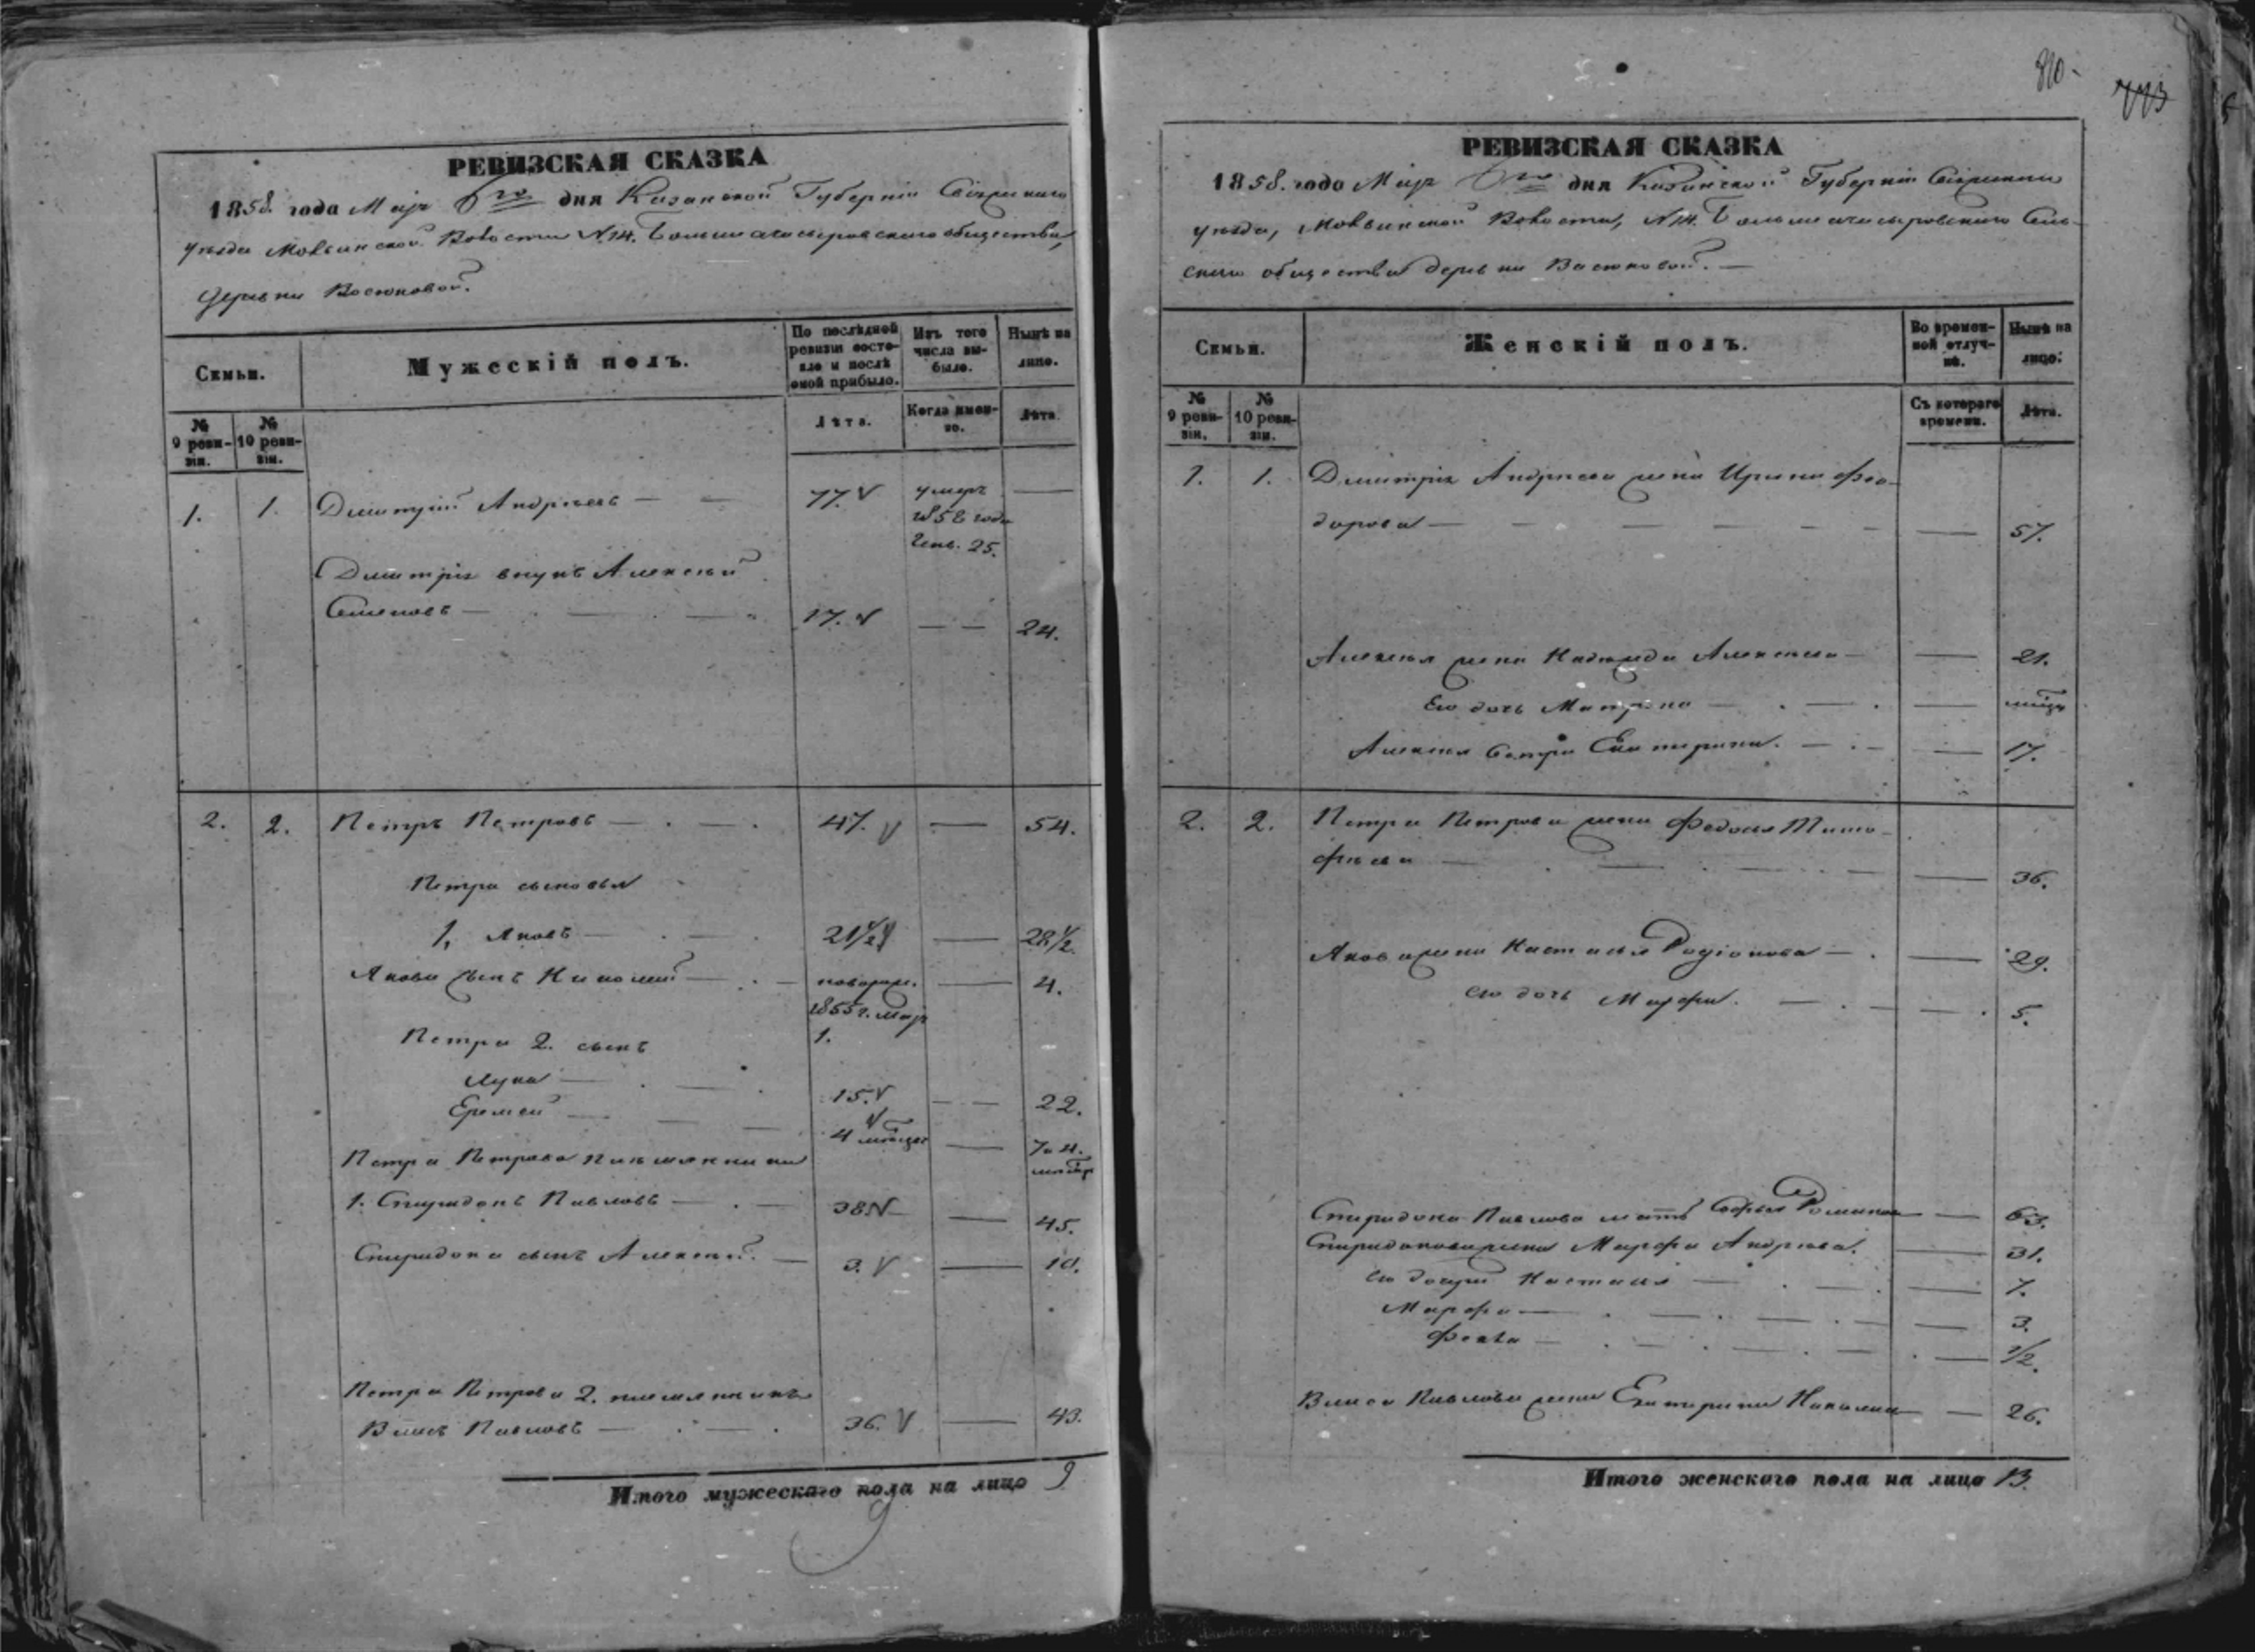 810.
773
РЕВИЗСКАЯ СКАЗКА
1858 года Маія 6го дня Казанской Губерніи
уѣзда Моквинской Волости №14. общества,
деревни Васюковой.
Семьи.
Мужескій полъ.
По послѣдней ревизіи состояло и послѣ оной прибыло.
Изъ того числа выбыло.
Нынѣ на лицо.
№ 9 ревизіи.
№ 10 ревизіи.
Лѣта.
Когда именно.
Лѣта.
1. 1. Дмитрій Андреевъ 77. умеръ
185 года
25.
Дмитрія внукъ Алексѣй
Семеновъ 17. 24.
2. 2. Петръ Петровъ 47. 54.
Петра сыновья
1, Яковъ 21 1/2 28 1/2.
Якова сынъ Николай новорож. 4.
1855 г. Маія
1.
Петра 2. сынъ
Лука 15. 22.
Еремей 4 мѣсяц. 7 и 4.
Петра Петрова племянники
1. Спиридонъ Павловъ 38 45.
Спиридона сынъ Алексѣй. 3. 10.
Петра Петрова 2. племянникъ
Власъ Павловъ 36. 43.
Итого мужескаго пола на лицо 9
9
РЕВИЗСКАЯ СКАЗКА
1858. года Маія 6го дня Казанской Губерніи
уѣзда, Моквинской Волости, №14. Сель-
скаго общества деревни Васюковой.
Семьи.
Женскій полъ.
Во временной отлучкѣ.
Нынѣ на лицо.
№ 9 ревизіи.
№ 10 ревизіи.
Съ котораго времени.
Лѣта.
1. 1. Дмитрія Андреева жена Ирина Фео-
дорова 57.
Алексѣя жена Надежда Алексѣева 21.
Его дочь Матрена
Алексѣя сестра Екатерина. 17.
2. 2. Петра Петрова жена Федосья Тимо-
фѣева 36.
Якова жена Настасья Родіонова 29.
его дочь Марфа. 5.
Спиридона Павлова мать Софья Романова 63.
Спиридонова жена Марфа Андреева. 31.
его дочери Настасья 7.
Марфа 3.
Фекла 1/2.
Власа Павлова жена Екатерина 26.
Итого женскаго пола на лицо 13.